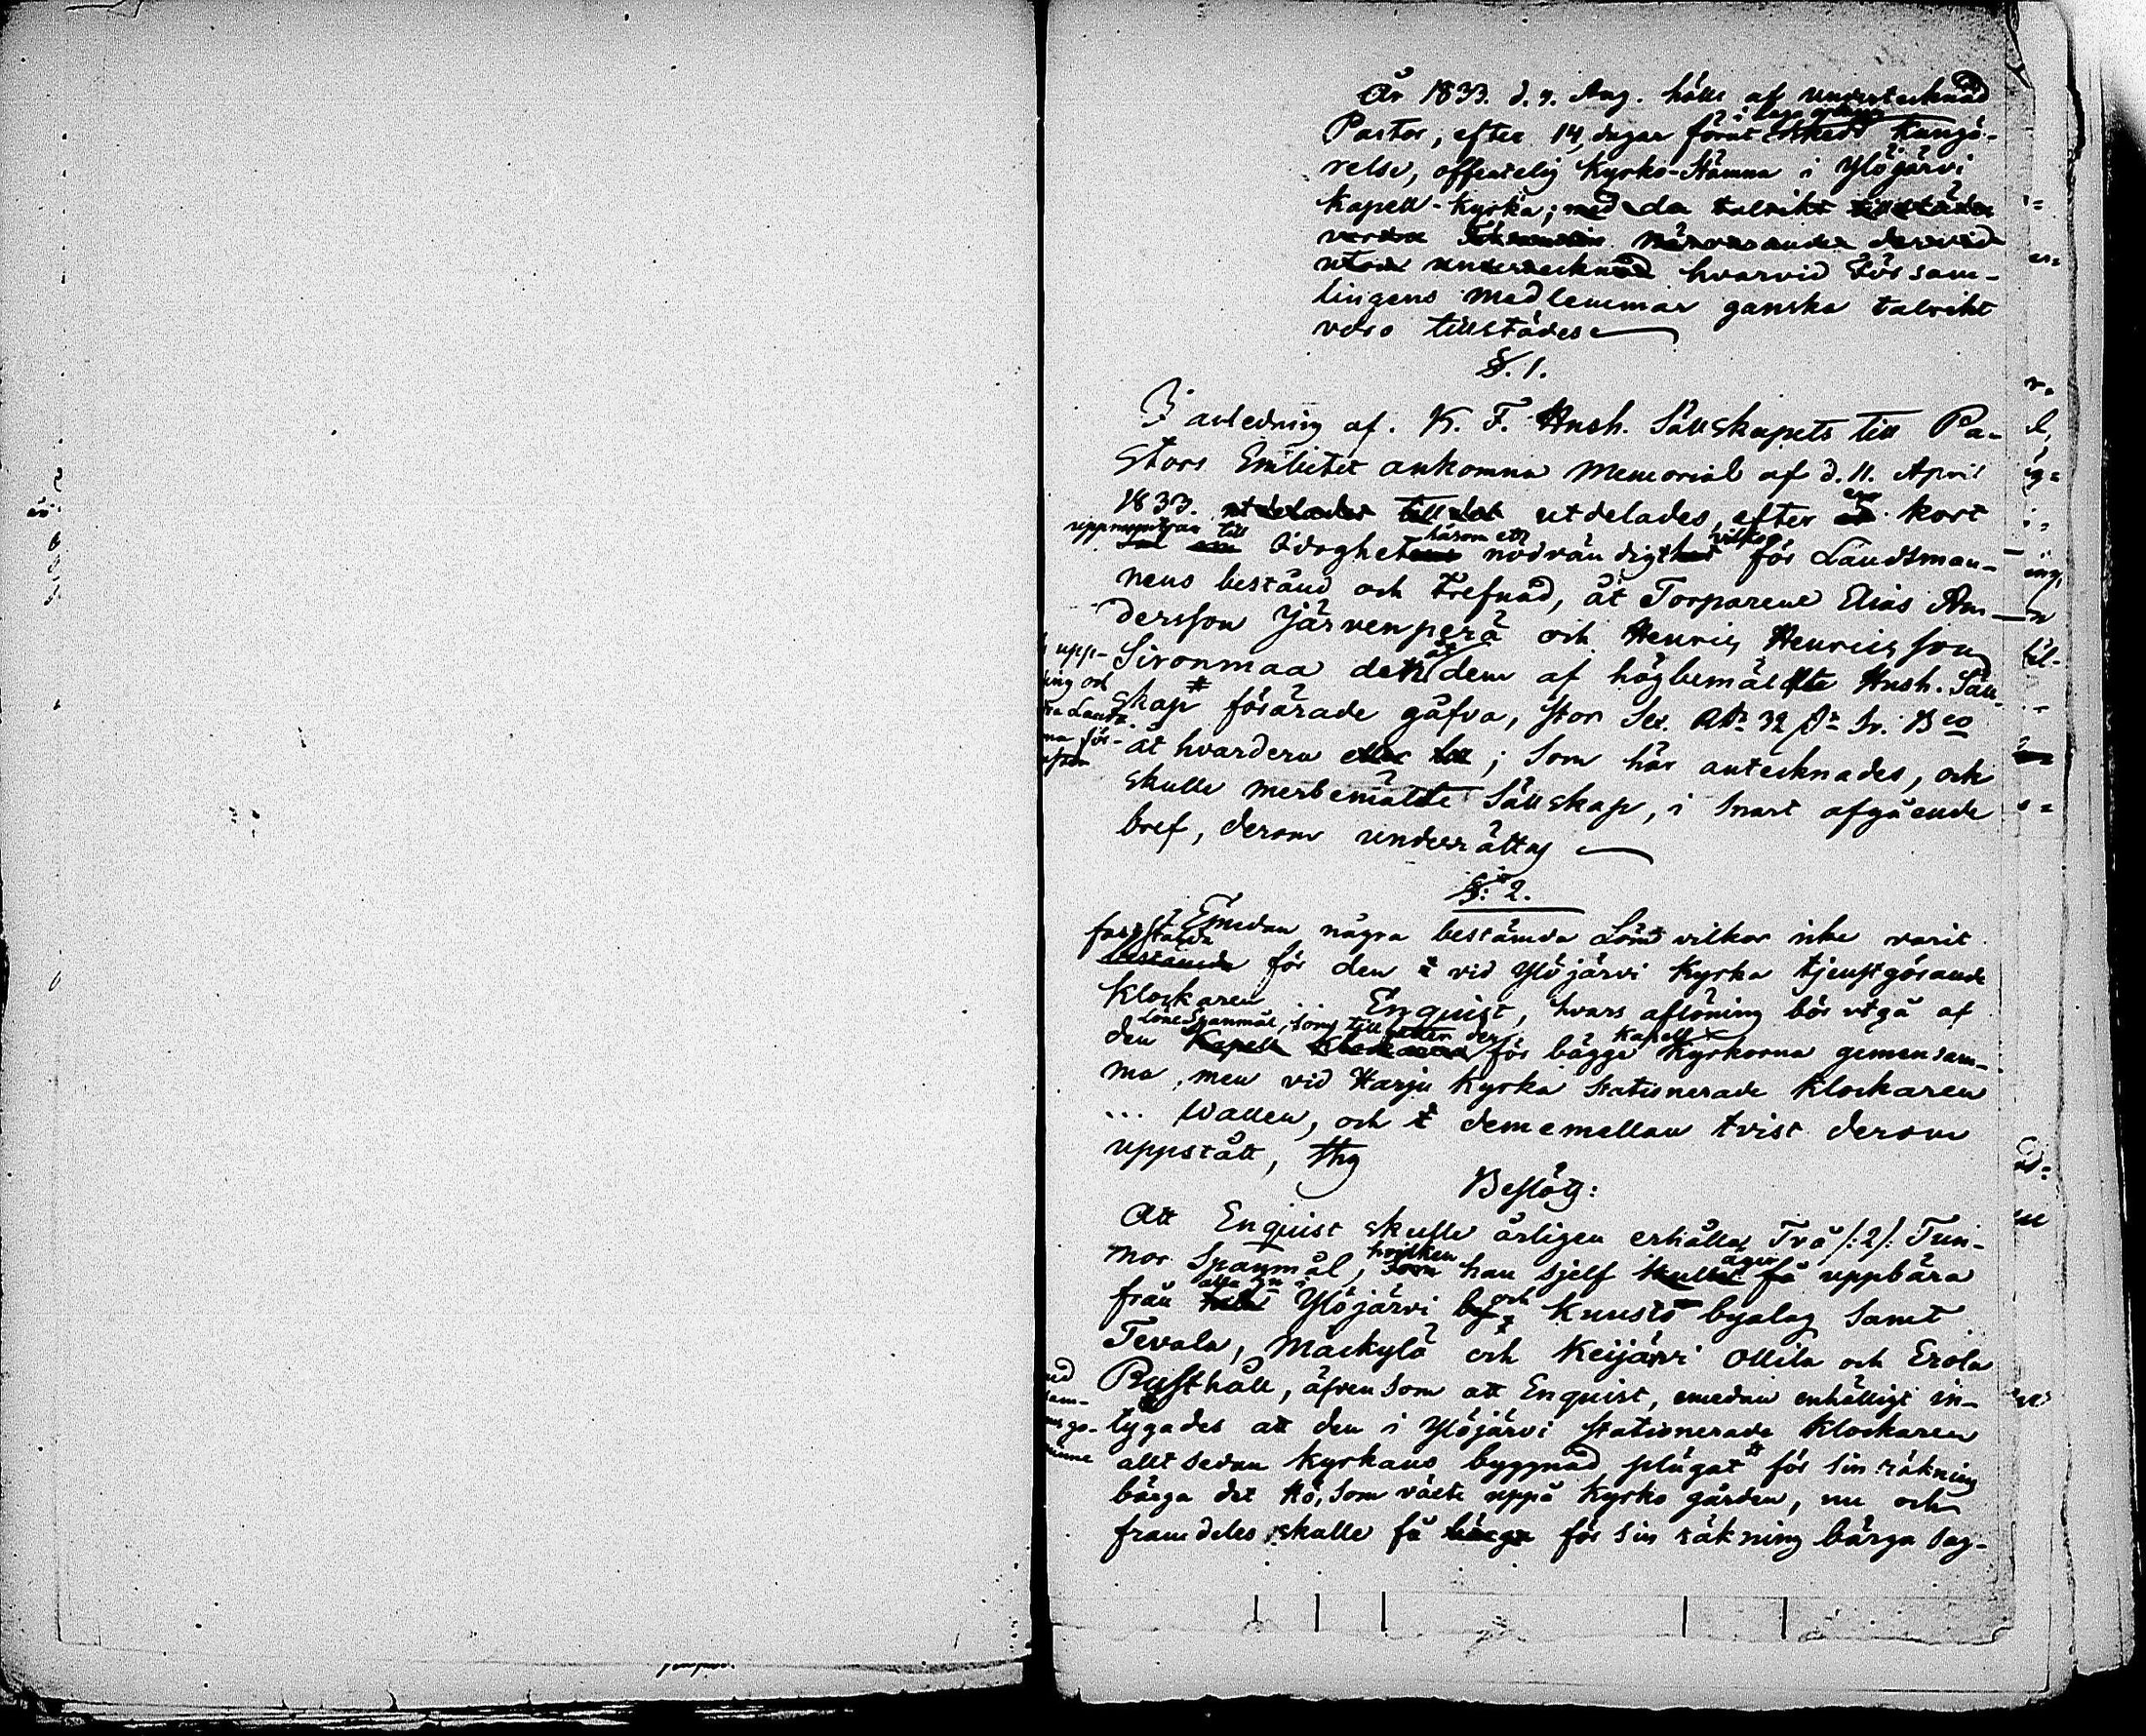 År 1833. d. 9. Aug. hölls af undertecknad
i laga ordning
Pastor, efter 14 dagar förut skedd kungö-
relse, offentelig Kyrko-Stämma i Ylöjärvi
Kapell-Kyrka; med da talrikt tillstädes
närvarande dervid
utom undertecknad hvarvid Försam-
lingens medlemmar ganska talrikt
voro tillstädes
§. 1.
I anledning af K. F. Hush. Sällskapets till Pa-
stors Embetet ankomna Memorial af d. 11. April
1833. utdelades till det utdelades, efter en kort
uppmuntran till
idoghet såsom ett nödvändigt vilkor för Landtman-
nens bestånd och trefnad, åt Torparene Elias An-
dersson Järvenperä och Henric Henricsson
Sironmaa det åt dem af högbemäldte Hush. Säll-
skap # förärade gåfva, stor Sex Rdr 32 s. Sv. Bco
åt hvardera ; som här antecknades, och
skulle merbemälte Sällskap, i snart afgående
bref, derom underrättas
upp-
ing och
tra Landt-
ma för-
§: 2.
Emedan några bestämda Löne vilkor icke varit
fastställda
bestämda för den vid Ylöjärvi Kyrka tjenstgörande
Klockaren Enquist, hvars aflöning bör utgå af
löneSpanmål, som tillkommer den
den Kapell Klockaren för bägge Kapell Kyrkorna gemensam-
ma, men vid Harju Kyrka stationerade Klockaren
... Wallen, och dem emellan tvist derom
uppstått, ty
Beslöts:
Att Enquist skulle årligen erhålla Två /:2/: Tun-
nor Spanmål, hvilken han sjelf äger uppbära
från alla i Ylöjärvi och Kuusto byalag samt
Tevala, Mäckylä och Keijärvi Ollila och Erola
Rusthåll, äfvensom att Enquist, emedan enhälligt in-
tygades att den i Ylöjärvi stationerade Klockaren
allt sedan Kyrkans byggnad plägat # för sin räkning
bärga det Hö, som växte uppå Kyrko gården, nu och
framdeles skulle få bärga för sin räkning bärga sag-